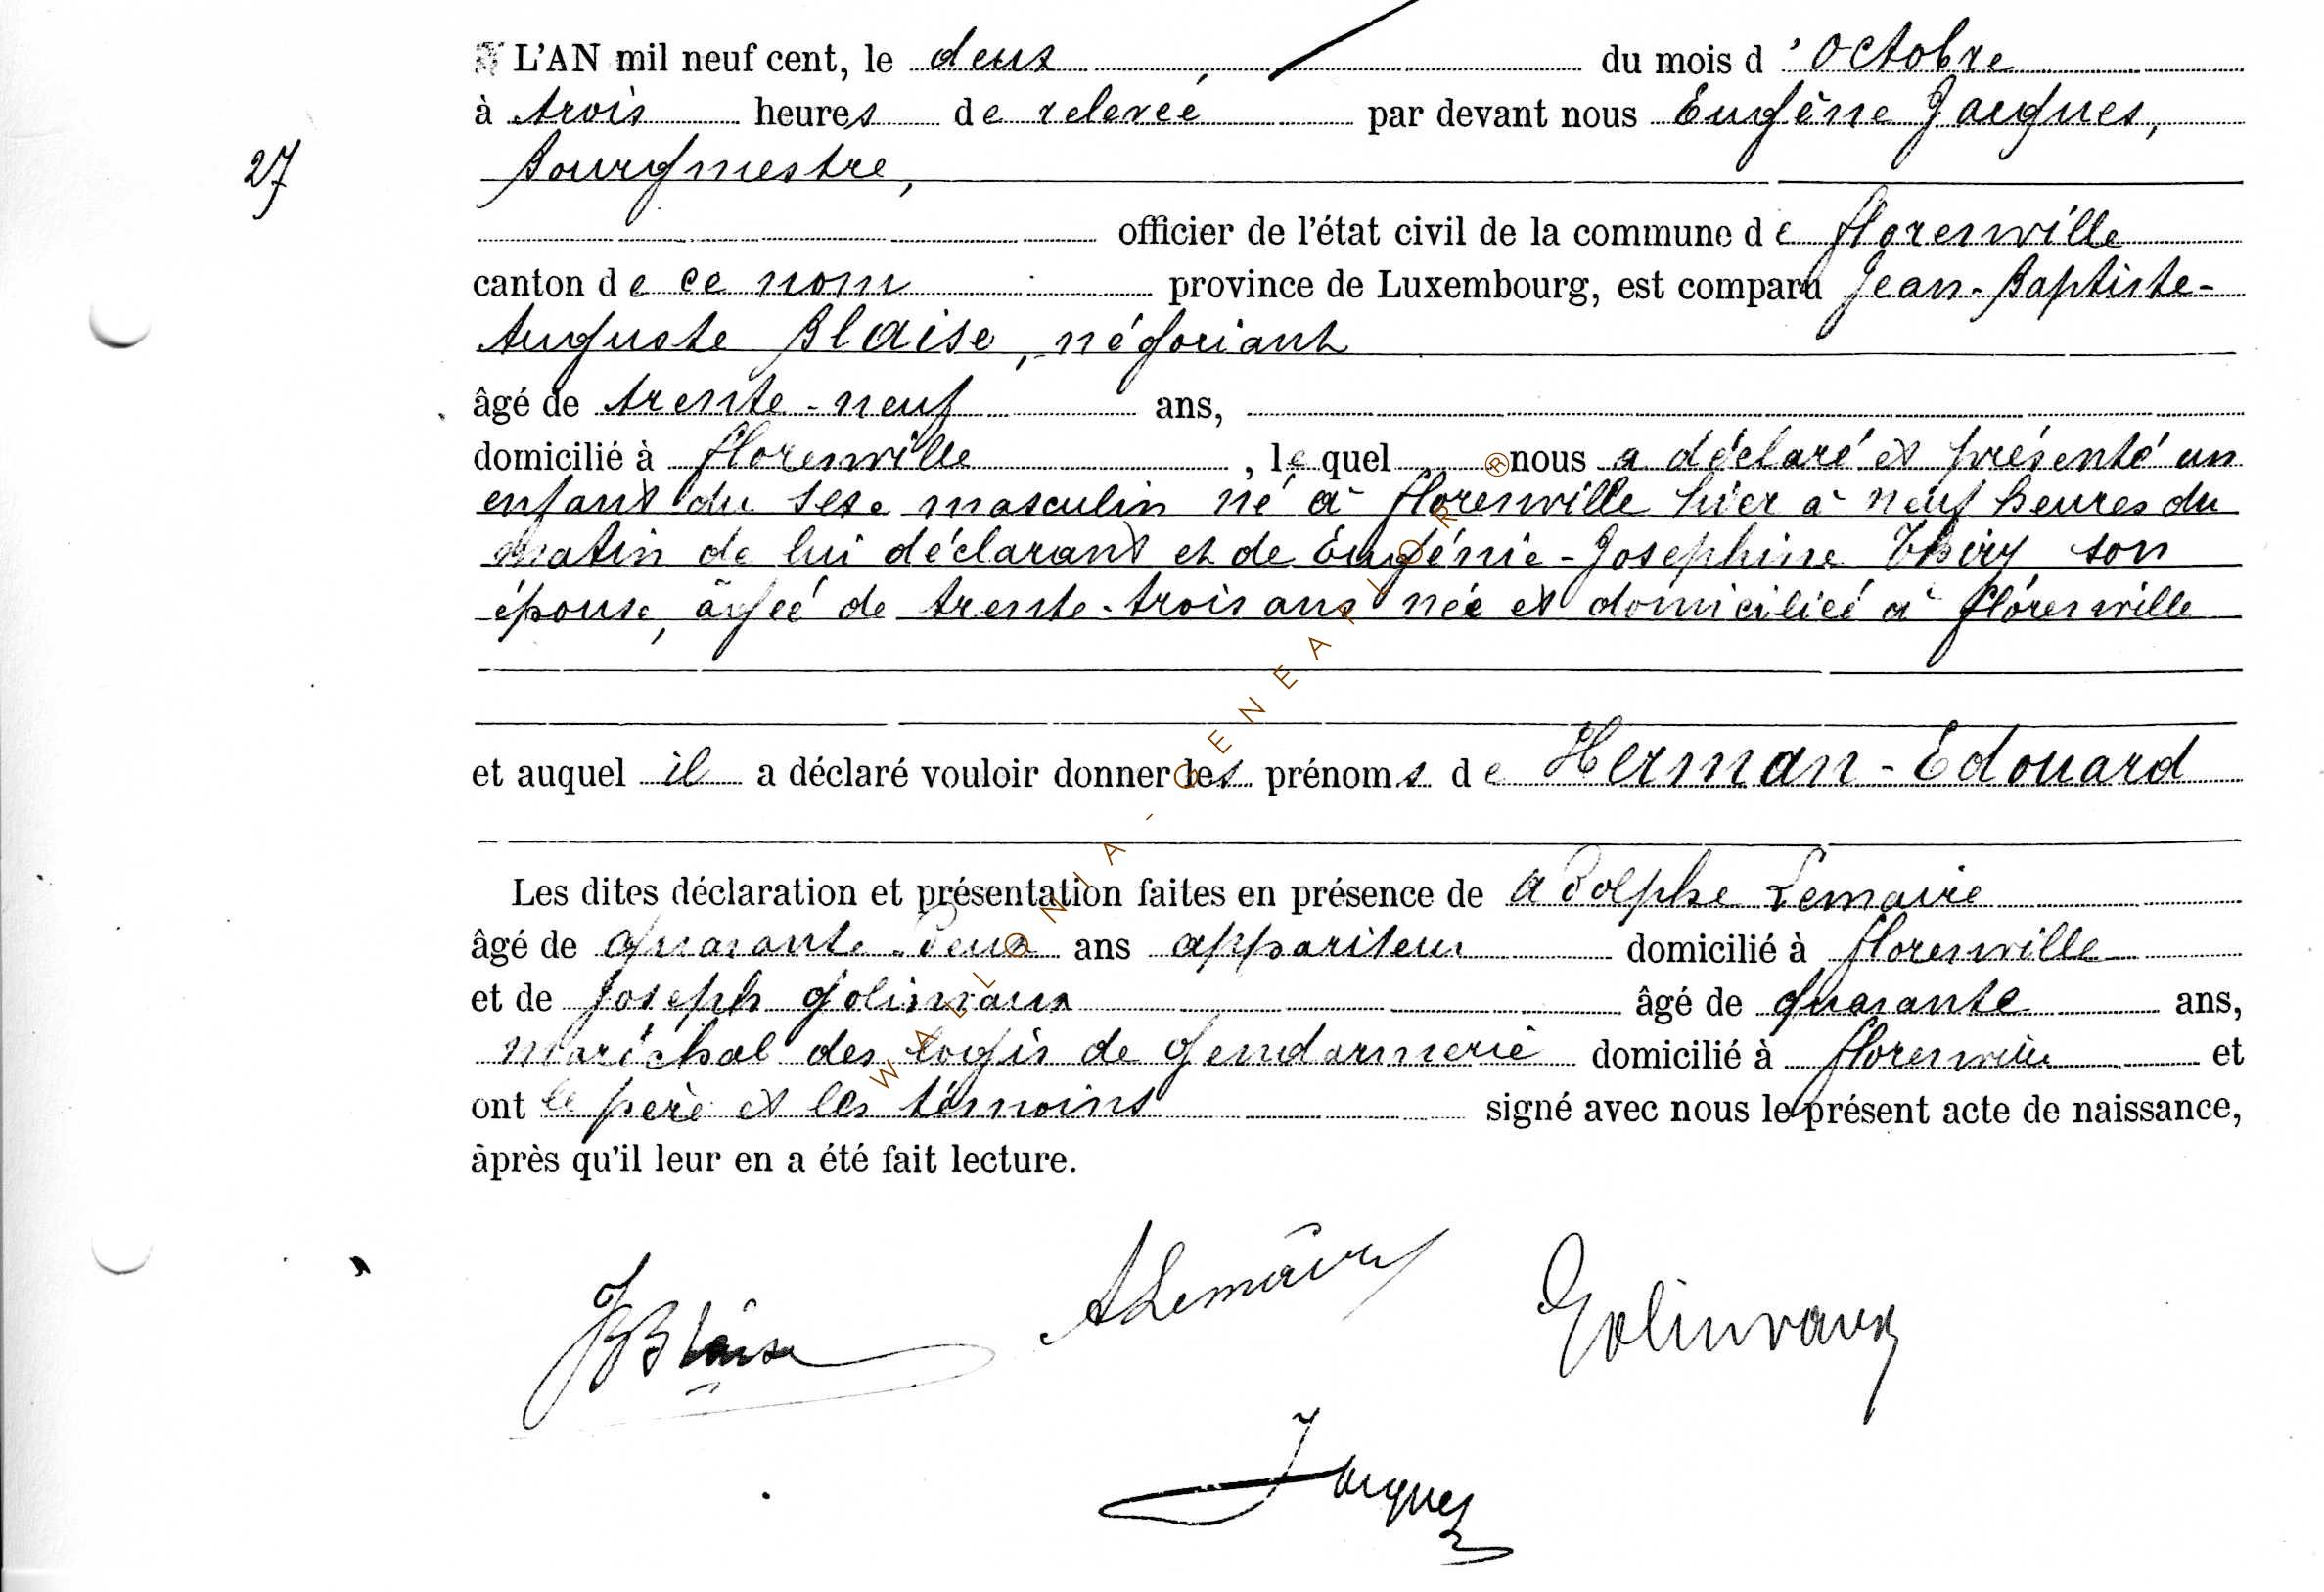 L'AN mil neuf cent, le deux du mois d'octobre
à trois heures de relevée par devant nous Eugène Jacques,
27
Bourgmestre,
officier de l'état civil de la commune de Florenville
canton de ce nom province de Luxembourg, est comparu Jean-Baptiste-
Auguste Blaise, négociant
âgé de trente-neuf ans,
domicilié à Florenville, lequel nous a déclaré et présenté un
enfant du sexe masculin né à Florenville hier à neuf heures du
matin de lui déclarant et de Eugénie-Josephine Thiry son
épouse, âgée de trente-trois ans née et domiciliée à Florenville
et auquel il a déclaré vouloir donner les prénoms de Herman-Edouard
Les dites déclaration et présentation faites en présence de Adolphe Lemaire
âgé de quarante-deux ans appariteur domicilié à Florenville
et de Joseph Golinvaux âgé de quarante ans,
maréchal des logis de gendarmerie domicilié à Florenville et
ont le père et les témoins signé avec nous le présent acte de naissance,
après qu'il leur en a été fait lecture.
JBBlaise ALemaire Golinvaux
Jacques
WALLONIA-GENEAFLOR®